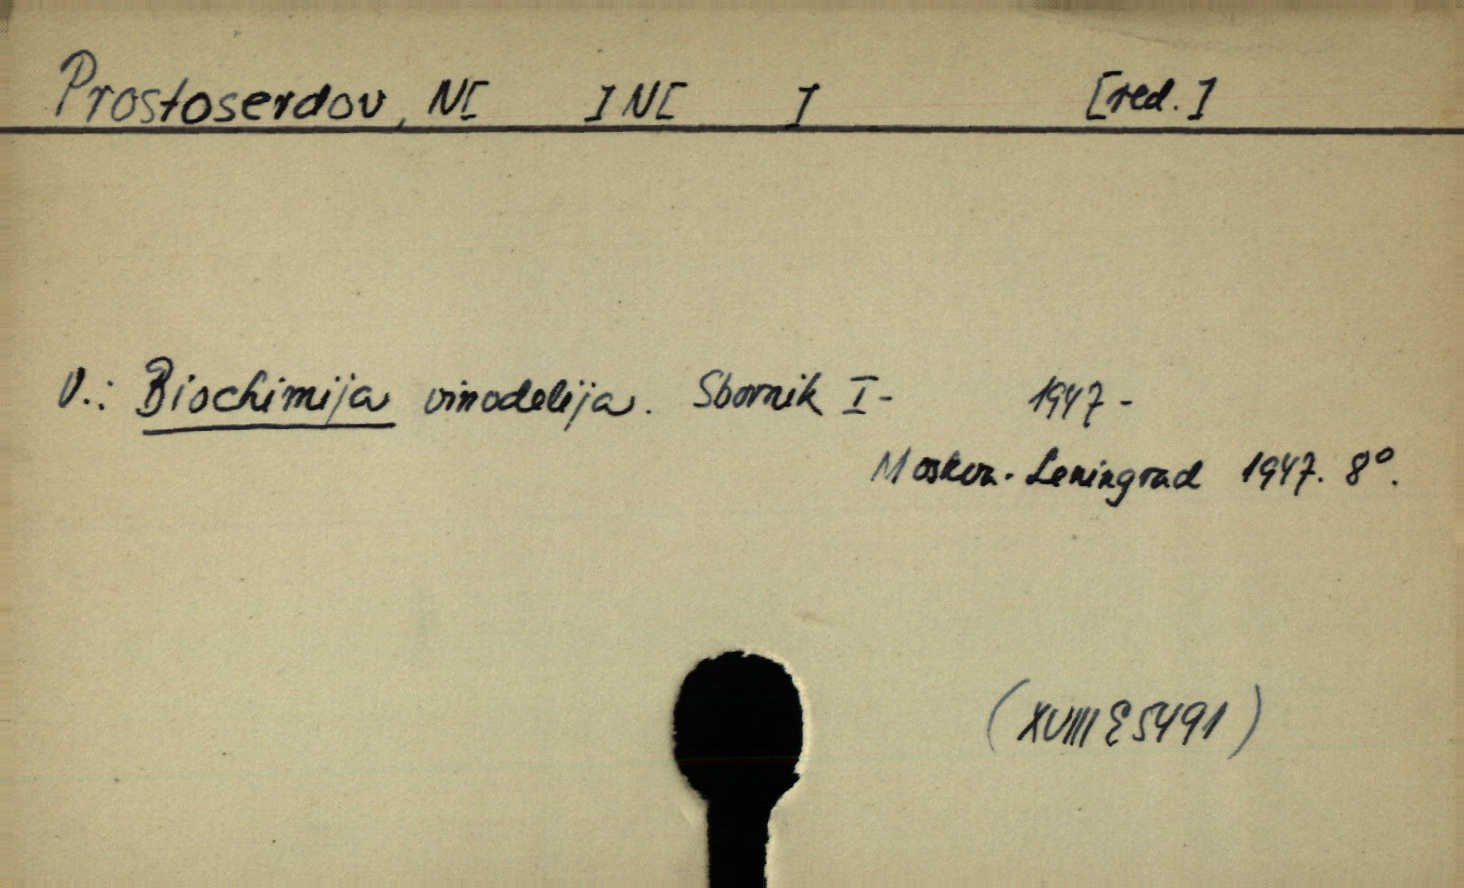 Prostoserdov, N[ ] N[ ] [red.]
V.: Biochimija vinodelija. Sbornik I- 1947-
Moskva-Leningrad 1947. 8°.
(XVIII E 5491)